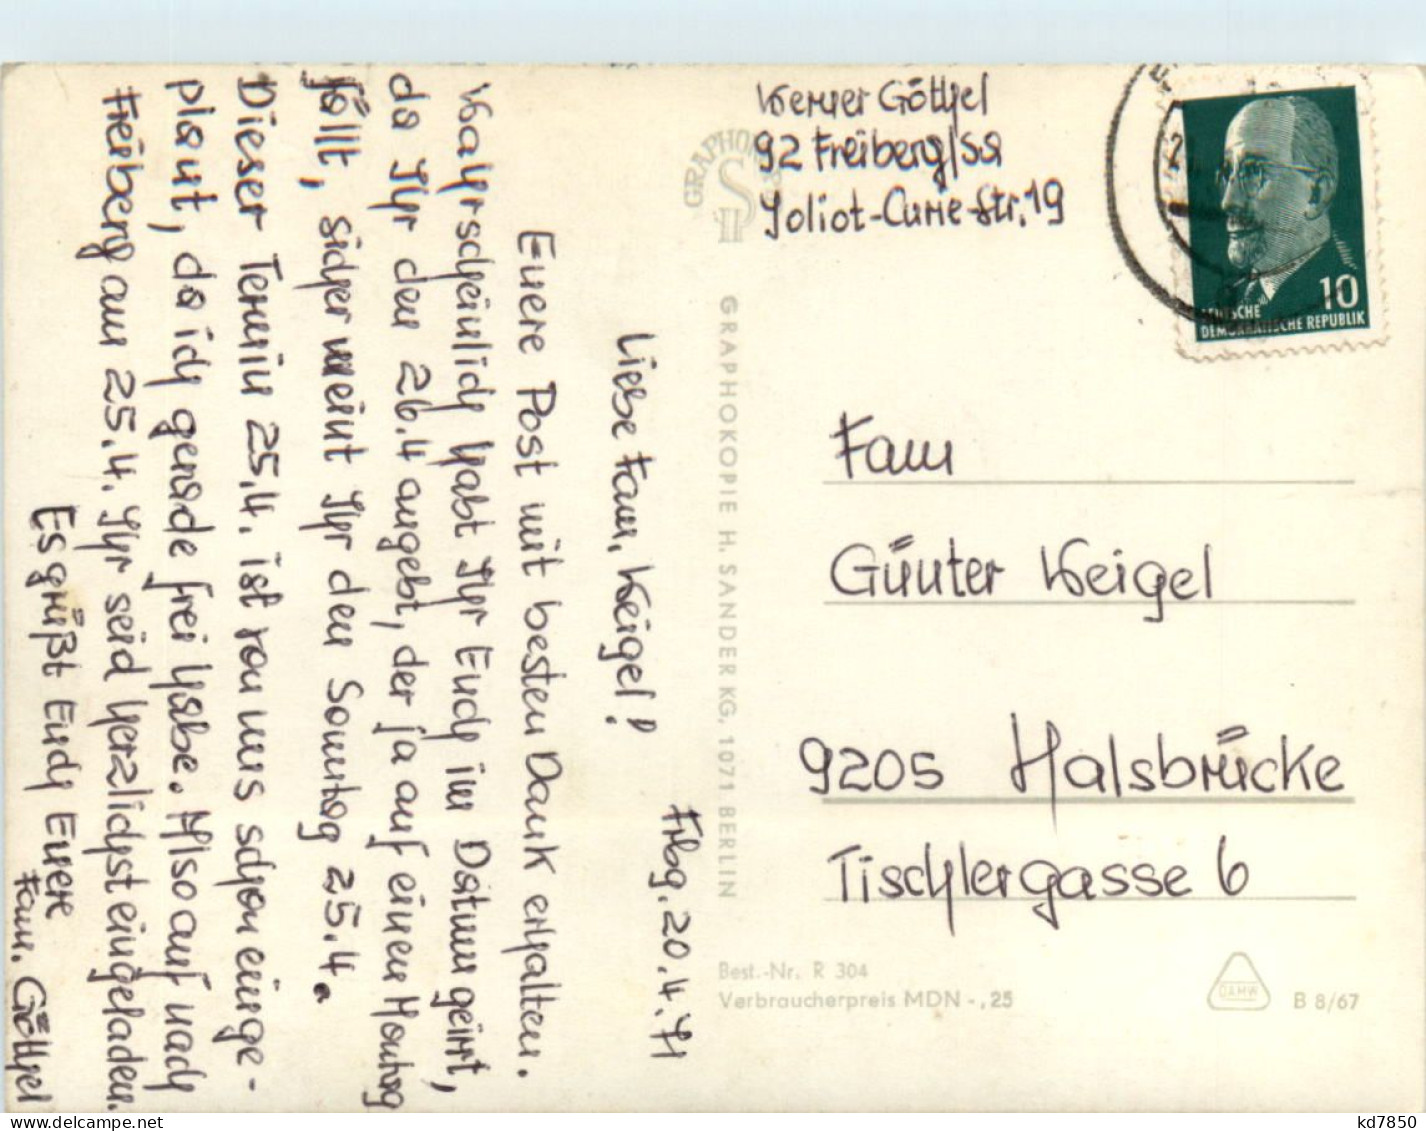 Frbg. 20.4.71
Liebe Fam. Weigel!
Euere Post mit besten Dank erhalten.
Wahrscheinlich habt Ihr Euch im Datum geirrt,
da Ihr den 26.4 angebt, der ja auf einen Montag
fällt, sicher meint Ihr den Sonntag 25.4.
Dieser Termin 25.4. ist von uns schon einge-
plant, da ich gerade frei habe. Also auf nach
Freiberg am 25.4. Ihr seid herzlichst eingeladen.
Es grüßt Euch Euere
Fam. Göthel
Werner Göthel
92 Freiberg/Sa
Joliot-Curie-Str. 19
GRAPHOKOPIE H. SANDER KG, 1071 BERLIN
10
DEUTSCHE
DEMOKRATISCHE REPUBLIK
Fam
Günter Weigel
9205 Halsbrücke
Tischlergasse 6
Best.-Nr. R 304
Verbraucherpreis MDN -,25
DAMW
B 8/67
www.delcampe.net
kd7850